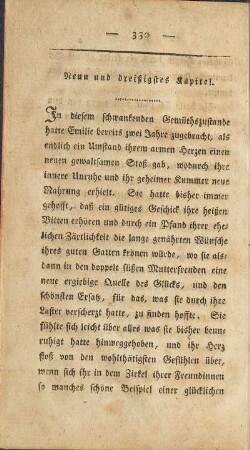 — 330 —
Neun und dreißigstes Kapitel.
In diesem schwankenden Gemüthszustande
hatte Emilie bereits zwei Jahre zugebracht, als
endlich ein Umstand ihrem armen Herzen einen
neuen gewaltsamen Stoß gab, wodurch ihre
innere Unruhe und ihr geheimer Kummer neue
Nahrung erhielt. Sie hatte bisher immer
gehofft, daß ein gütiges Geschick ihre heißen
Bitten erhören und durch ein Pfand ihrer ehe-
lichen Zärtlichkeit die lange genährten Wünsche
ihres guten Gatten krönen würde, wo sie als-
dann in den doppelt süßen Mutterfreuden eine
neue ergiebige Quelle des Glücks, und den
schönsten Ersatz, für das, was sie durch ihre
Laster verscherzt hatte, zu finden hoffte. Sie
fühlte sich leicht über alles was sie bisher beun-
ruhigt hatte hinweggehoben, und ihr Herz
floß von den wohlthätigsten Gefühlen über,
wenn sich ihr in dem Zirkel ihrer Freundinnen
so manches schöne Beispiel einer glücklichen